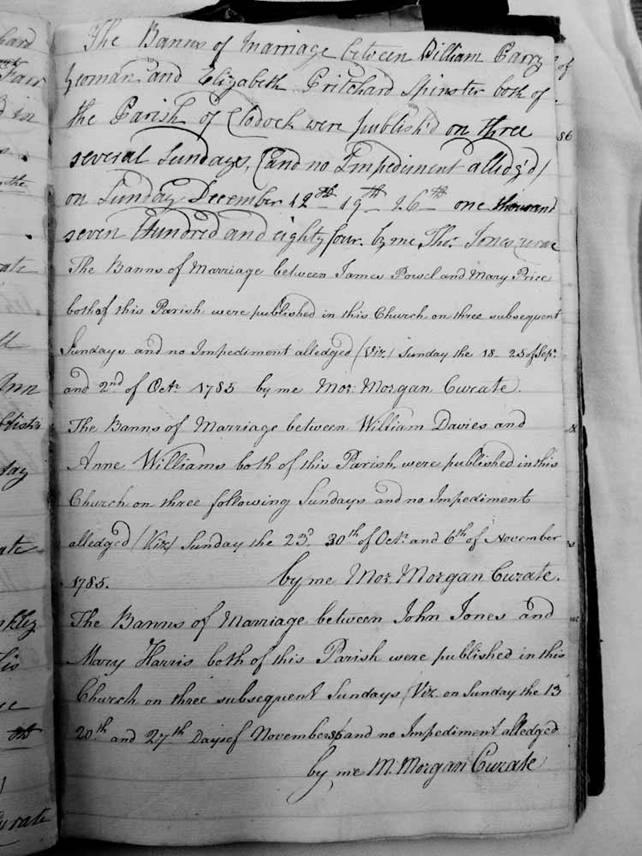 The Banns of Marriage between William Parry
Yeoman and Elizabeth Pritchard Spinster both of
the Parish of Clodock were publish'd on three
several Sundays, (and no Impediment alledg'd)
on Sunday December 12th 19th 26th one thousand
seven Hundred and eighty four. by me Thos. Jones
The Banns of Marriage between James Powel and Mary Price
both of this Parish were published in this Church on three subsequent
Sundays and no Impediment alledged (Viz) Sunday the 18 25 of Sepr.
and 2nd of Octr. 1785 by me Mor: Morgan Curate.
The Banns of Marriage between William Davies and
Anne Williams both of this Parish were published in this
Church on three following Sundays and no Impediment
alledged (Viz) Sunday the 23d. 30th of Octr. and 6th of November
1785. by me Mor. Morgan Curate.
The Banns of Marriage between John Jones and
Mary Harris both of this Parish were published in this
Church on three subsequent Sundays (Viz. on Sunday the 13
20th and 27th Days of November and no Impediment alledged
by me M. Morgan Curate